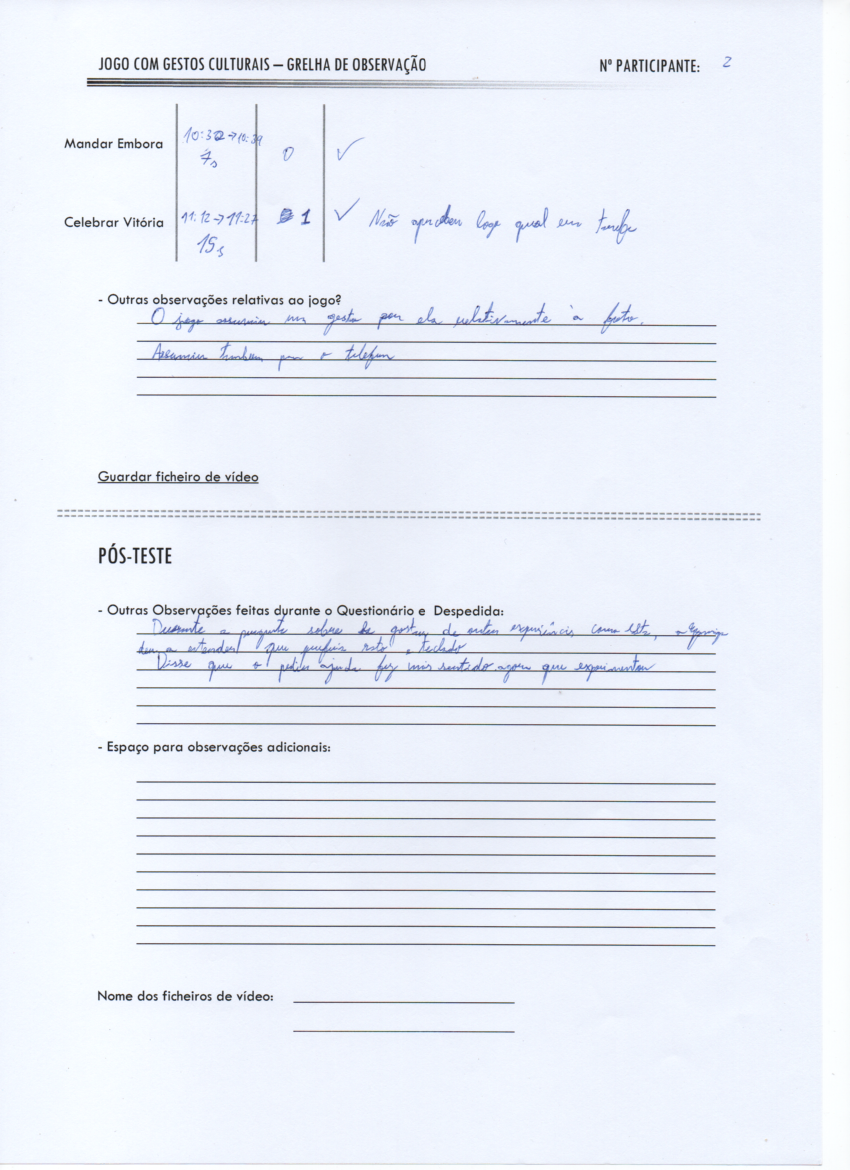 JOGO COM GESTOS CULTURAIS – GRELHA DE OBSERVAÇÃO Nº PARTICIPANTE: 2
Mandar Embora 10:32→10:39 0 ✓
7s
Celebrar Vitória 11:12→11:27 1 ✓ Não logo qual era tarefa
15s
- Outras observações relativas ao jogo?
O jogo assumiu um gesto por ela relativamente à foto.
Assumiu também para o telefone
Guardar ficheiro de vídeo
PÓS-TESTE
- Outras Observações feitas durante o Questionário e Despedida:
Durante a pergunta sobre gostar de outras experiências como esta, a
deu a entender que preferia rato e teclado
Disse que o pedir ajuda fez mais sentido agora que experimentou
- Espaço para observações adicionais:
Nome dos ficheiros de vídeo: